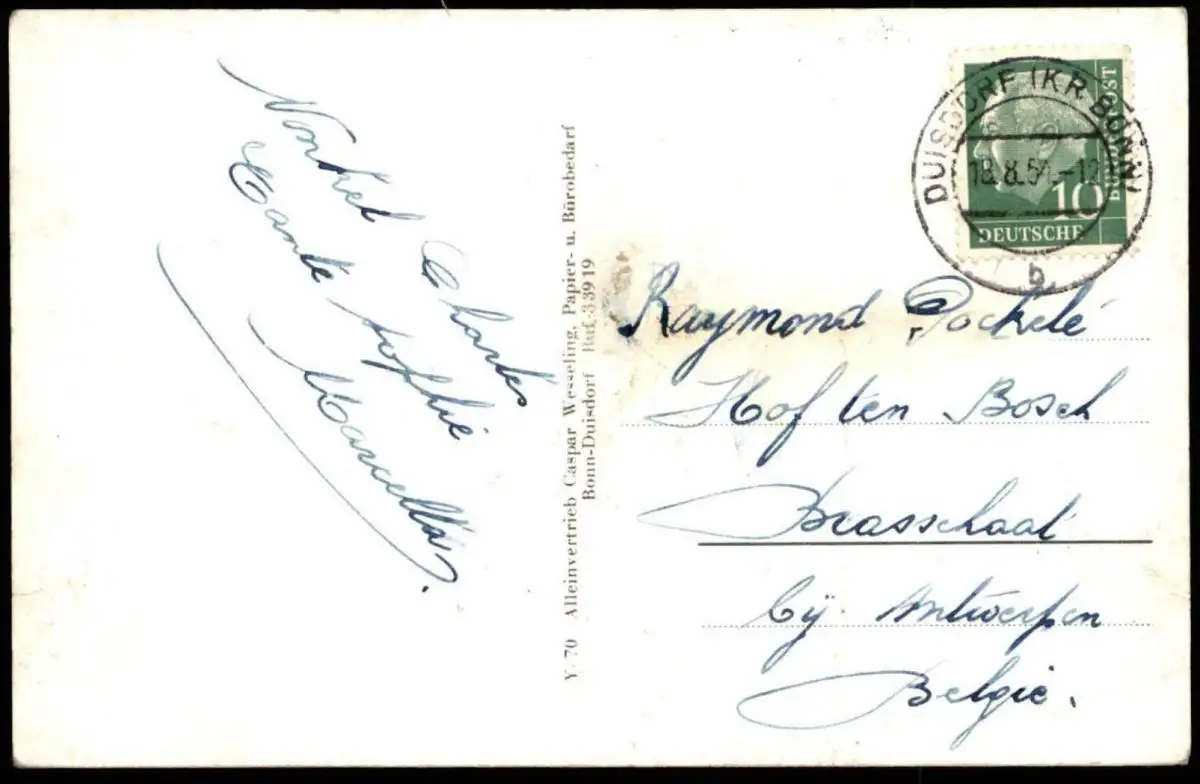 Nonkel Charles
Tante Sophie
Marcella.
Y 70 Alleinvertrieb Caspar Wesseling, Papier- u. Bürobedarf
Bonn-Duisdorf Ruf 33919
DUISDORF (KR. BONN)
18.8.54.-12
b
10
DEUTSCHE
BUNDESPOST
Raymond Pockelé
Hof ten Bosch
Brasschaat
bij Antwerpen
Belgie.